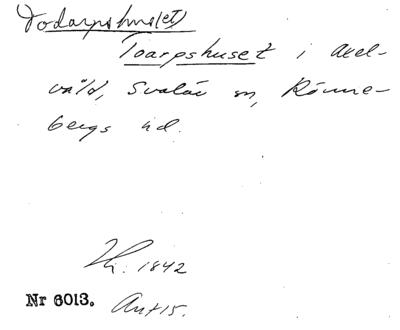 Todarpshus(et)
Toarpshuset i Axel-
vald, Svalöv sn, Rönne-
bergs hd.
1842
Nr 6013. Ant 15.